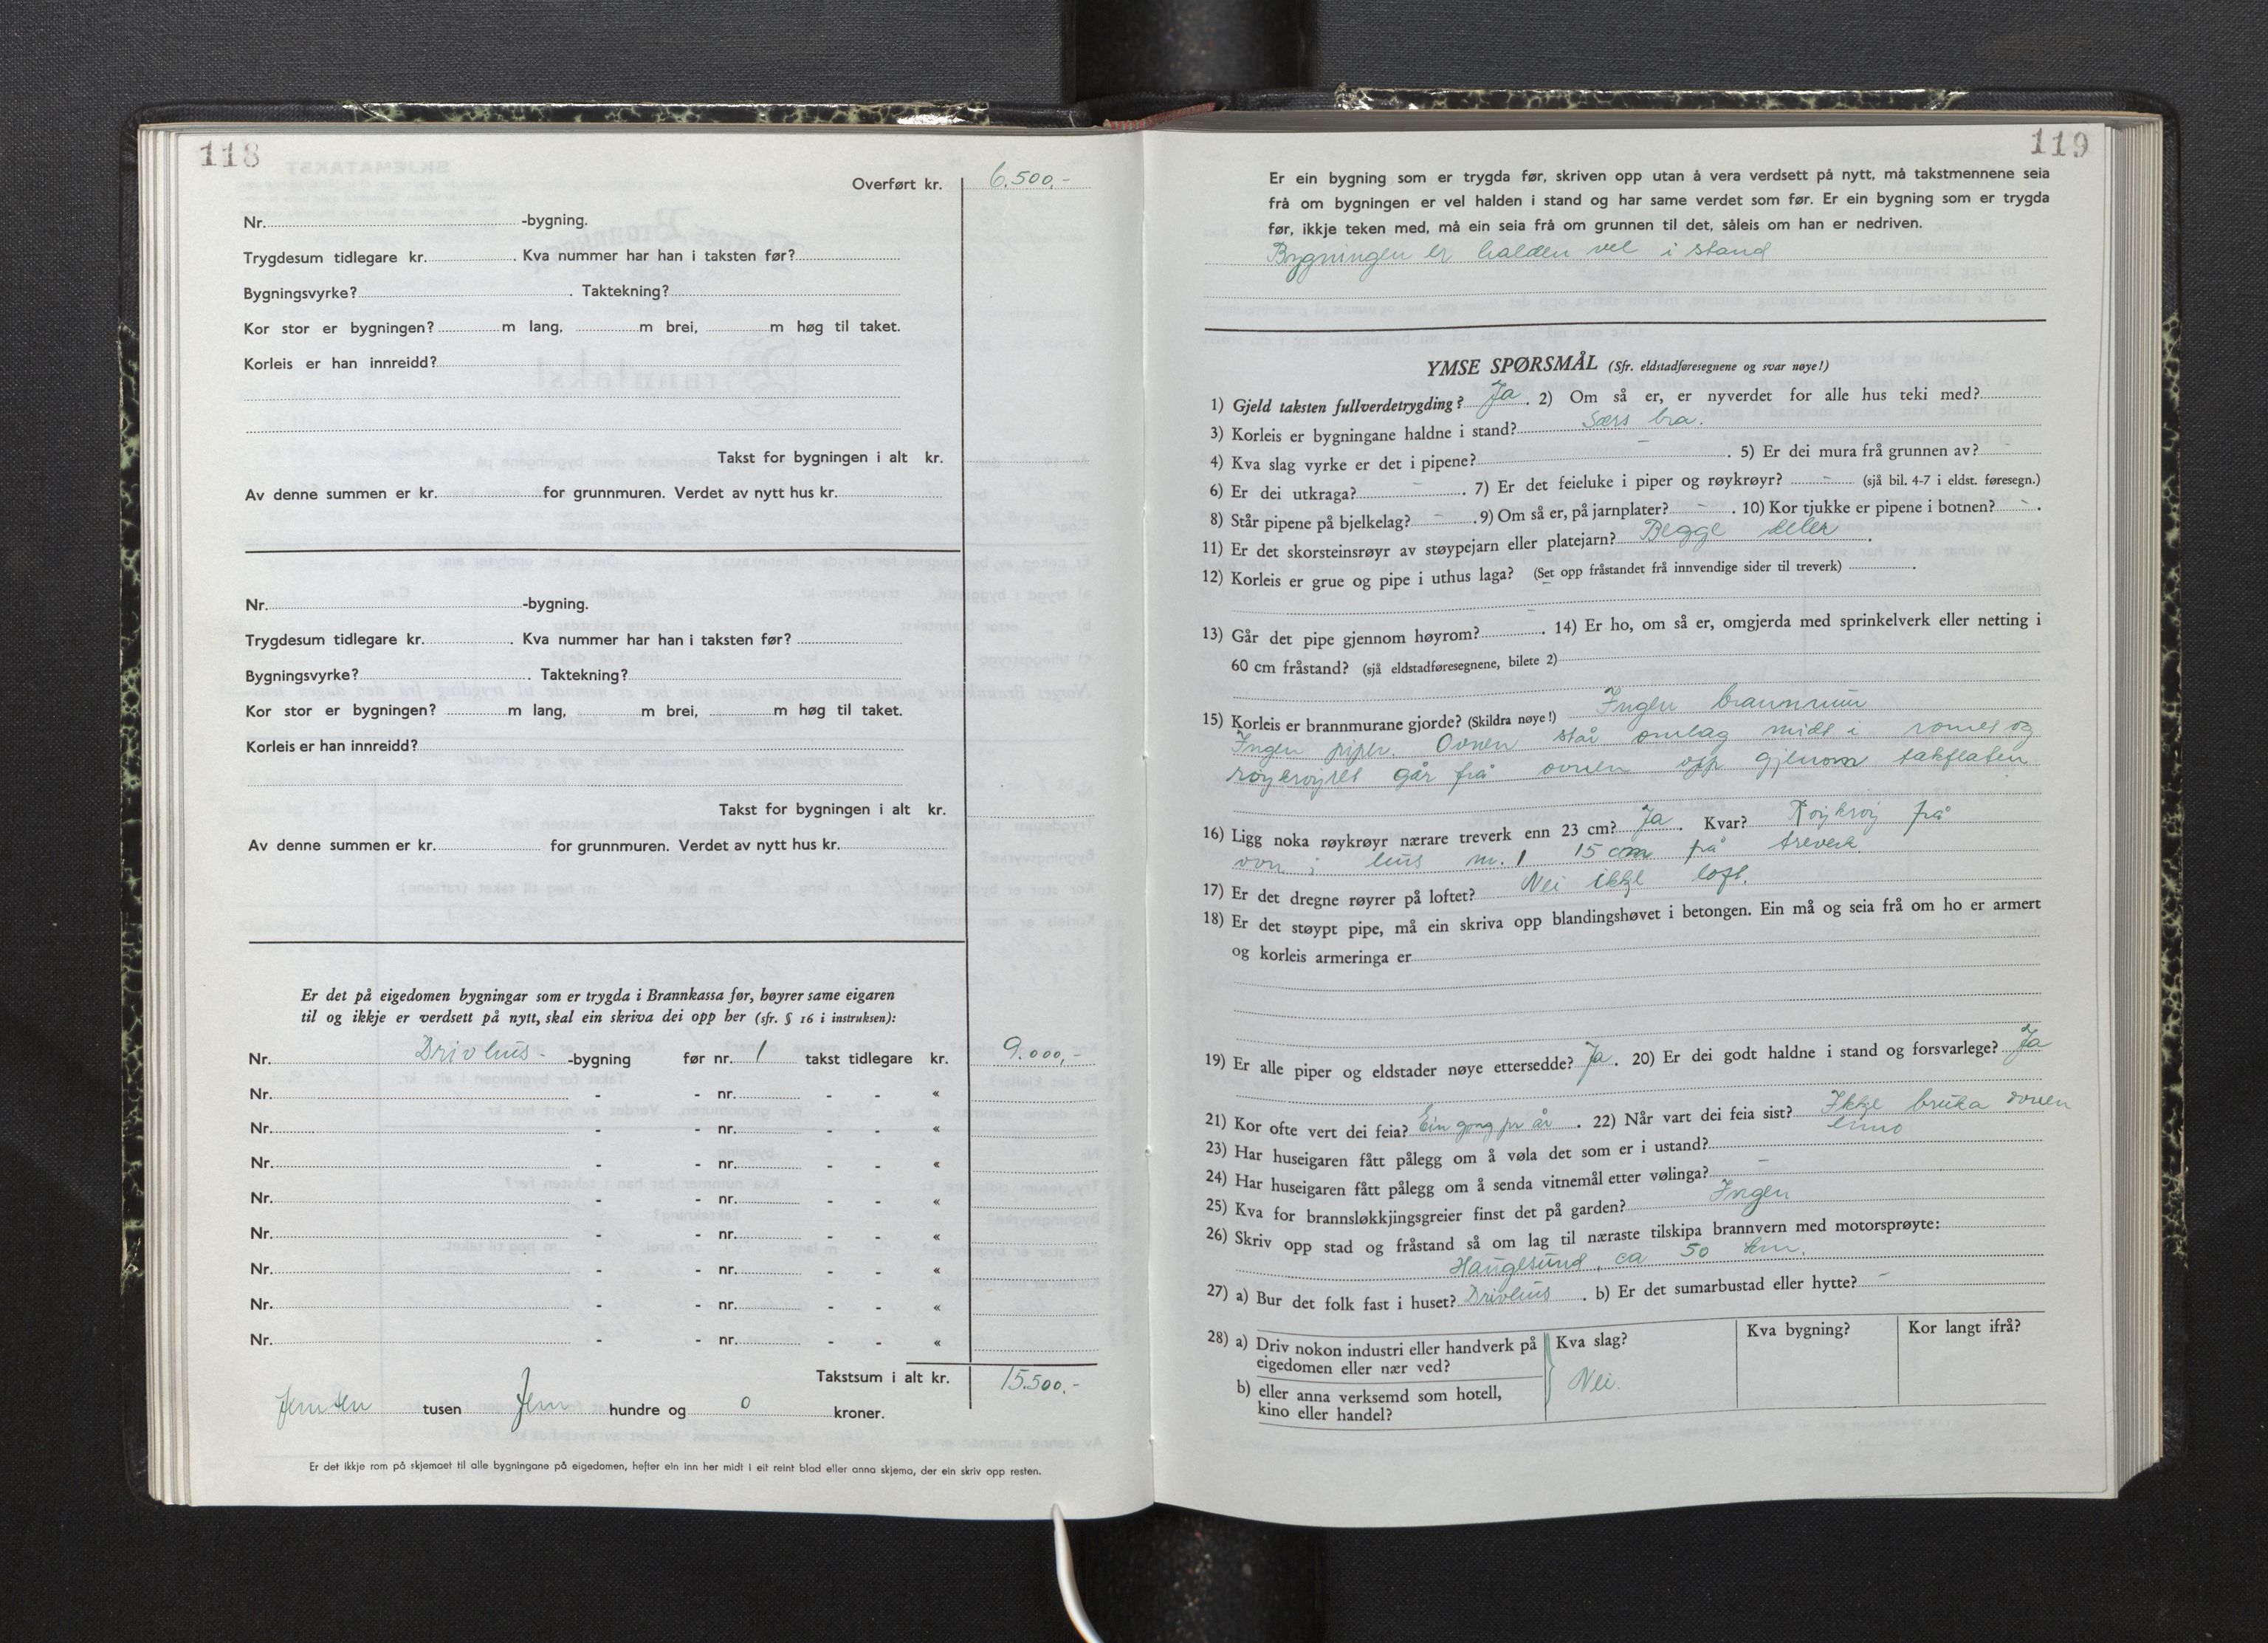 118
Overført kr. 6.500,-
Nr. -bygning.
Trygdesum tidlegare kr. . Kva nummer har han i taksten før?
Bygningsvyrke? . Taktekning?
Kor stor er bygningen? m lang, m brei, m høg til taket.
Korleis er han innreidd?
Takst for bygningen i alt kr.
Av denne summen er kr. for grunnmuren. Verdet av nytt hus kr.
Nr. -bygning.
Trygdesum tidlegare kr. . Kva nummer har han i taksten før?
Bygningsvyrke? . Taktekning?
Kor stor er bygningen? m lang, m brei, m høg til taket.
Korleis er han innreidd?
Takst for bygningen i alt kr.
Av denne summen er kr. for grunnmuren. Verdet av nytt hus kr.
Er det på eigedomen bygningar som er trygda i Brannkassa før, høyrer same eigaren
til og ikkje er verdsett på nytt, skal ein skriva dei opp her (sfr. § 16 i instruksen):
Nr. Drivhus- -bygning før nr. 1 takst tidlegare kr. 9.000,-
Nr. - - nr. - - «
Nr. - - nr. - - «
Nr. - - nr. - - «
Nr. - - nr. - - «
Nr. - - nr. - - «
Nr. - - nr. - - «
Nr. - - nr. - - «
Nr. - - nr. - - «
Takstsum i alt kr. 15.500,-
Femten tusen Fem hundre og 0 kroner.
Er det ikkje rom på skjemaet til alle bygningane på eigedomen, hefter ein inn her midt i eit reint blad eller anna skjema, der ein skriv opp resten.
119
Er ein bygning som er trygda før, skriven opp utan å vera verdsett på nytt, må takstmennene seia
frå om bygningen er vel halden i stand og har same verdet som før. Er ein bygning som er trygda
før, ikkje teken med, må ein seia frå om grunnen til det, såleis om han er nedriven.
Bygningen er halden vel i stand
YMSE SPØRSMÅL (Sfr. eldstadføresegnene og svar nøye!)
1) Gjeld taksten fullverdetrygding? Ja . 2) Om så er, er nyverdet for alle hus teki med?
3) Korleis er bygningane haldne i stand? Særs bra.
4) Kva slag vyrke er det i pipene? - . 5) Er dei mura frå grunnen av? -
6) Er dei utkraga? - . 7) Er det feieluke i piper og røykrøyr? - (sjå bil. 4-7 i eldst. føresegn.)
8) Står pipene på bjelkelag? - . 9) Om så er, på jarnplater? - . 10) Kor tjukke er pipene i botnen? - .
11) Er det skorsteinsrøyr av støypejarn eller platejarn? Begge deler .
12) Korleis er grue og pipe i uthus laga? (Set opp fråstandet frå innvendige sider til treverk) .
-
13) Går det pipe gjennom høyrom? . 14) Er ho, om så er, omgjerda med sprinkelverk eller netting i
60 cm fråstand? (sjå eldstadføresegnene, bilete 2)
15) Korleis er brannmurane gjorde? (Skildra nøye!) Ingen brannmur
Ingen piper. Ovnen står omlag midt i romet og
røykrøyret går frå ovnen opp gjenom takflaten
16) Ligg noka røykrøyr nærare treverk enn 23 cm? Ja . Kvar? Røykrøy frå
ovn i hus nr. 1 15 cm frå treverk.
17) Er det dregne røyrer på loftet? Nei ikkje loft.
18) Er det støypt pipe, må ein skriva opp blandingshøvet i betongen. Ein må og seia frå om ho er armert
og korleis armeringa er
19) Er alle piper og eldstader nøye ettersedde? Ja . 20) Er dei godt haldne i stand og forsvarlege? Ja
21) Kor ofte vert dei feia? Ein gong pr år . 22) Når vart dei feia sist? Ikkje bruka ovnen
enno
23) Har huseigaren fått pålegg om å vøla det som er i ustand?
24) Har huseigaren fått pålegg om å senda vitnemål etter vølinga? -
25) Kva for brannsløkkjingsgreier finst det på garden? Ingen
26) Skriv opp stad og fråstand så om lag til næraste tilskipa brannvern med motorsprøyte:
Haugesund, ca 50 km.
27) a) Bur det folk fast i huset? Drivhus . b) Er det sumarbustad eller hytte? -
28) a) Driv nokon industri eller handverk på
eigedomen eller nær ved?
b) eller anna verksemd som hotell,
kino eller handel?
Kva slag?
Nei.
Kva bygning?
Kor langt ifrå?